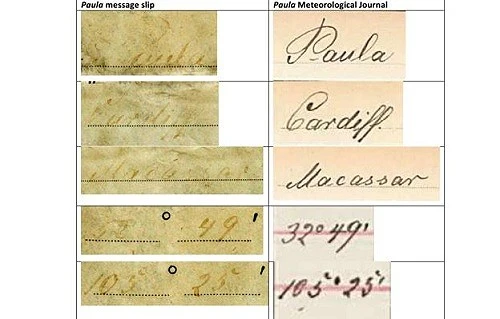 Paula message slip Paula Meteorological Journal
Paula Paula
Cardiff Cardiff.
Macassar Macassar
° 49' 32° 49'
105° 25' 105° 25'